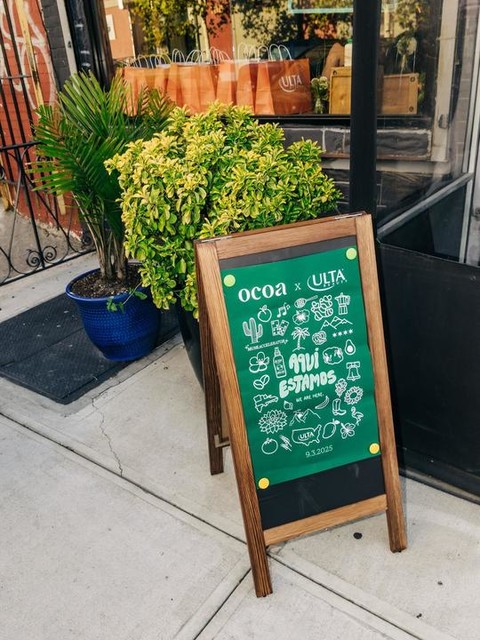 ULTA
ocoa x ULTA
BEAUTY
#MUSEACCELERATOR
AQUÍ
ESTAMOS
WE ARE HERE.
ULTA
9.3.2025